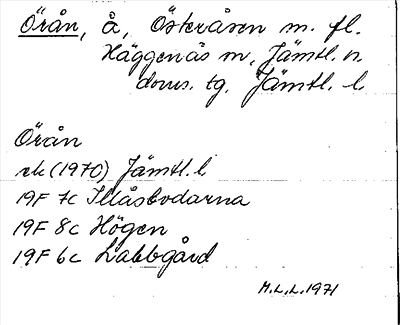 Örån, å, Österåsen m. fl.
Häggenås m, Jämtl. n.
doms. tg. Jämtl. l.
Örån
rk (1970) Jämtl. l
19F 7c Illåsbodarna
19F 8c Högen
19F 6c Labbgård
M.L.L. 1971